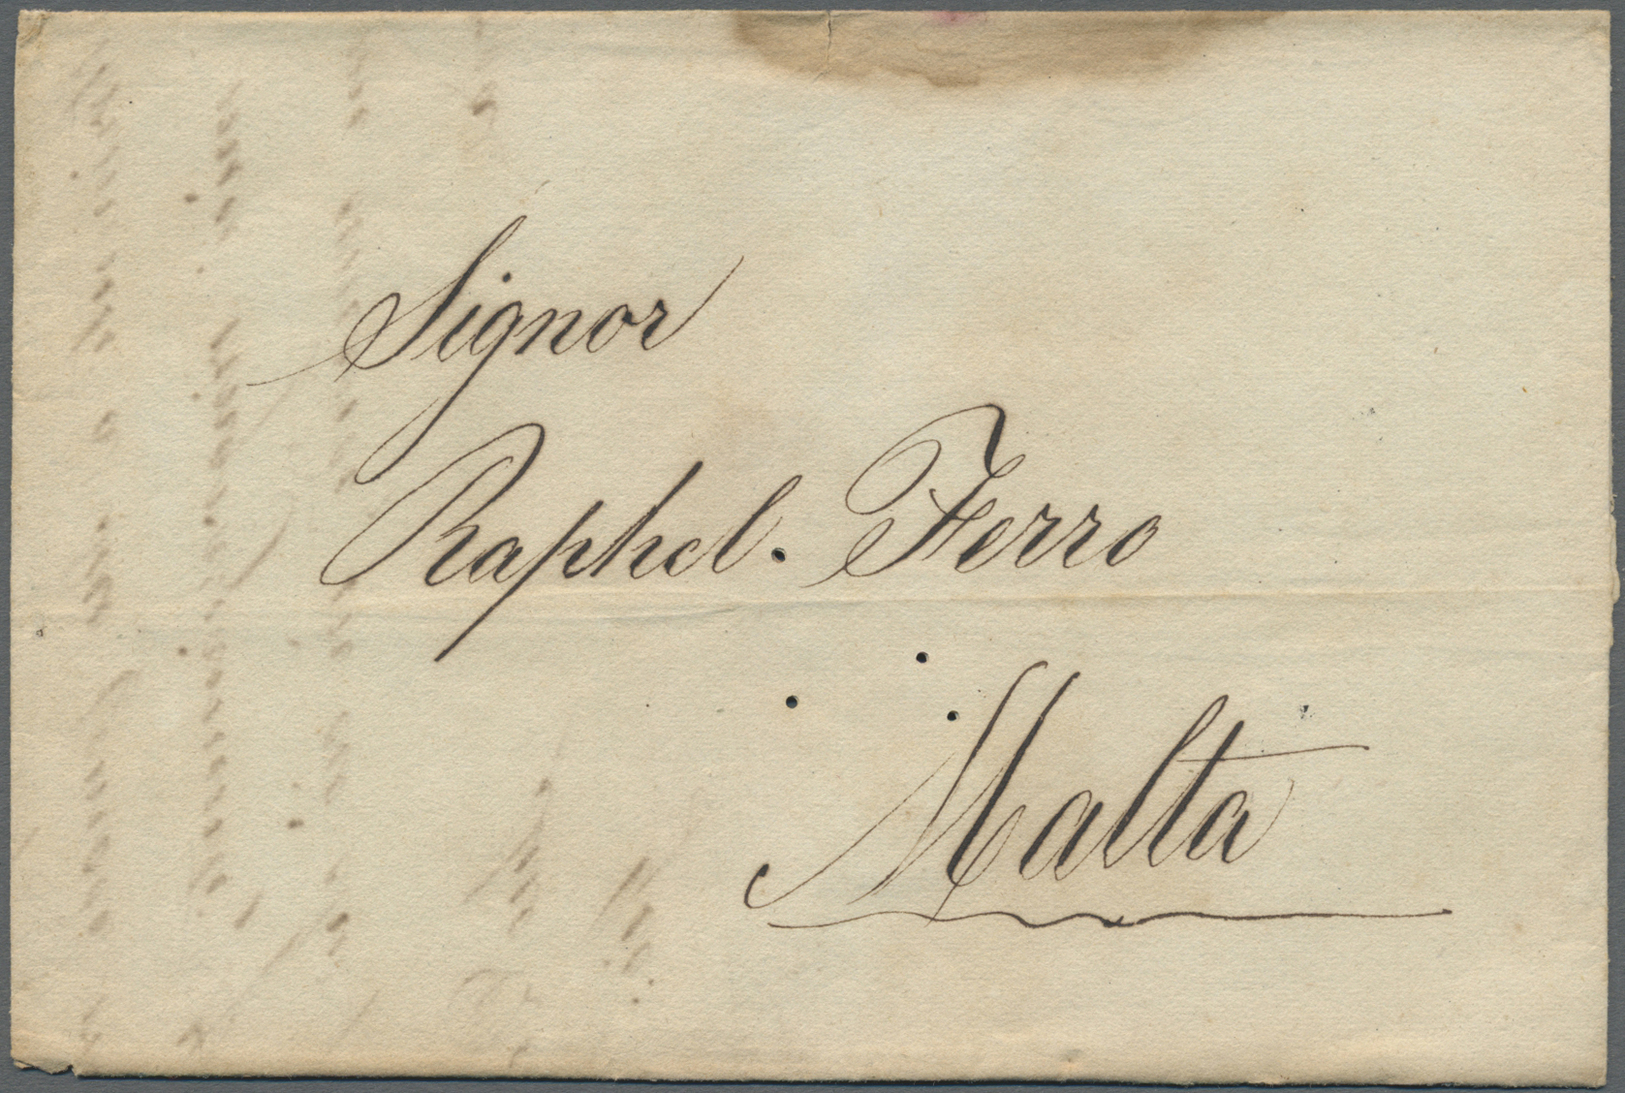 Signor
Raphel. Ferro
Malta